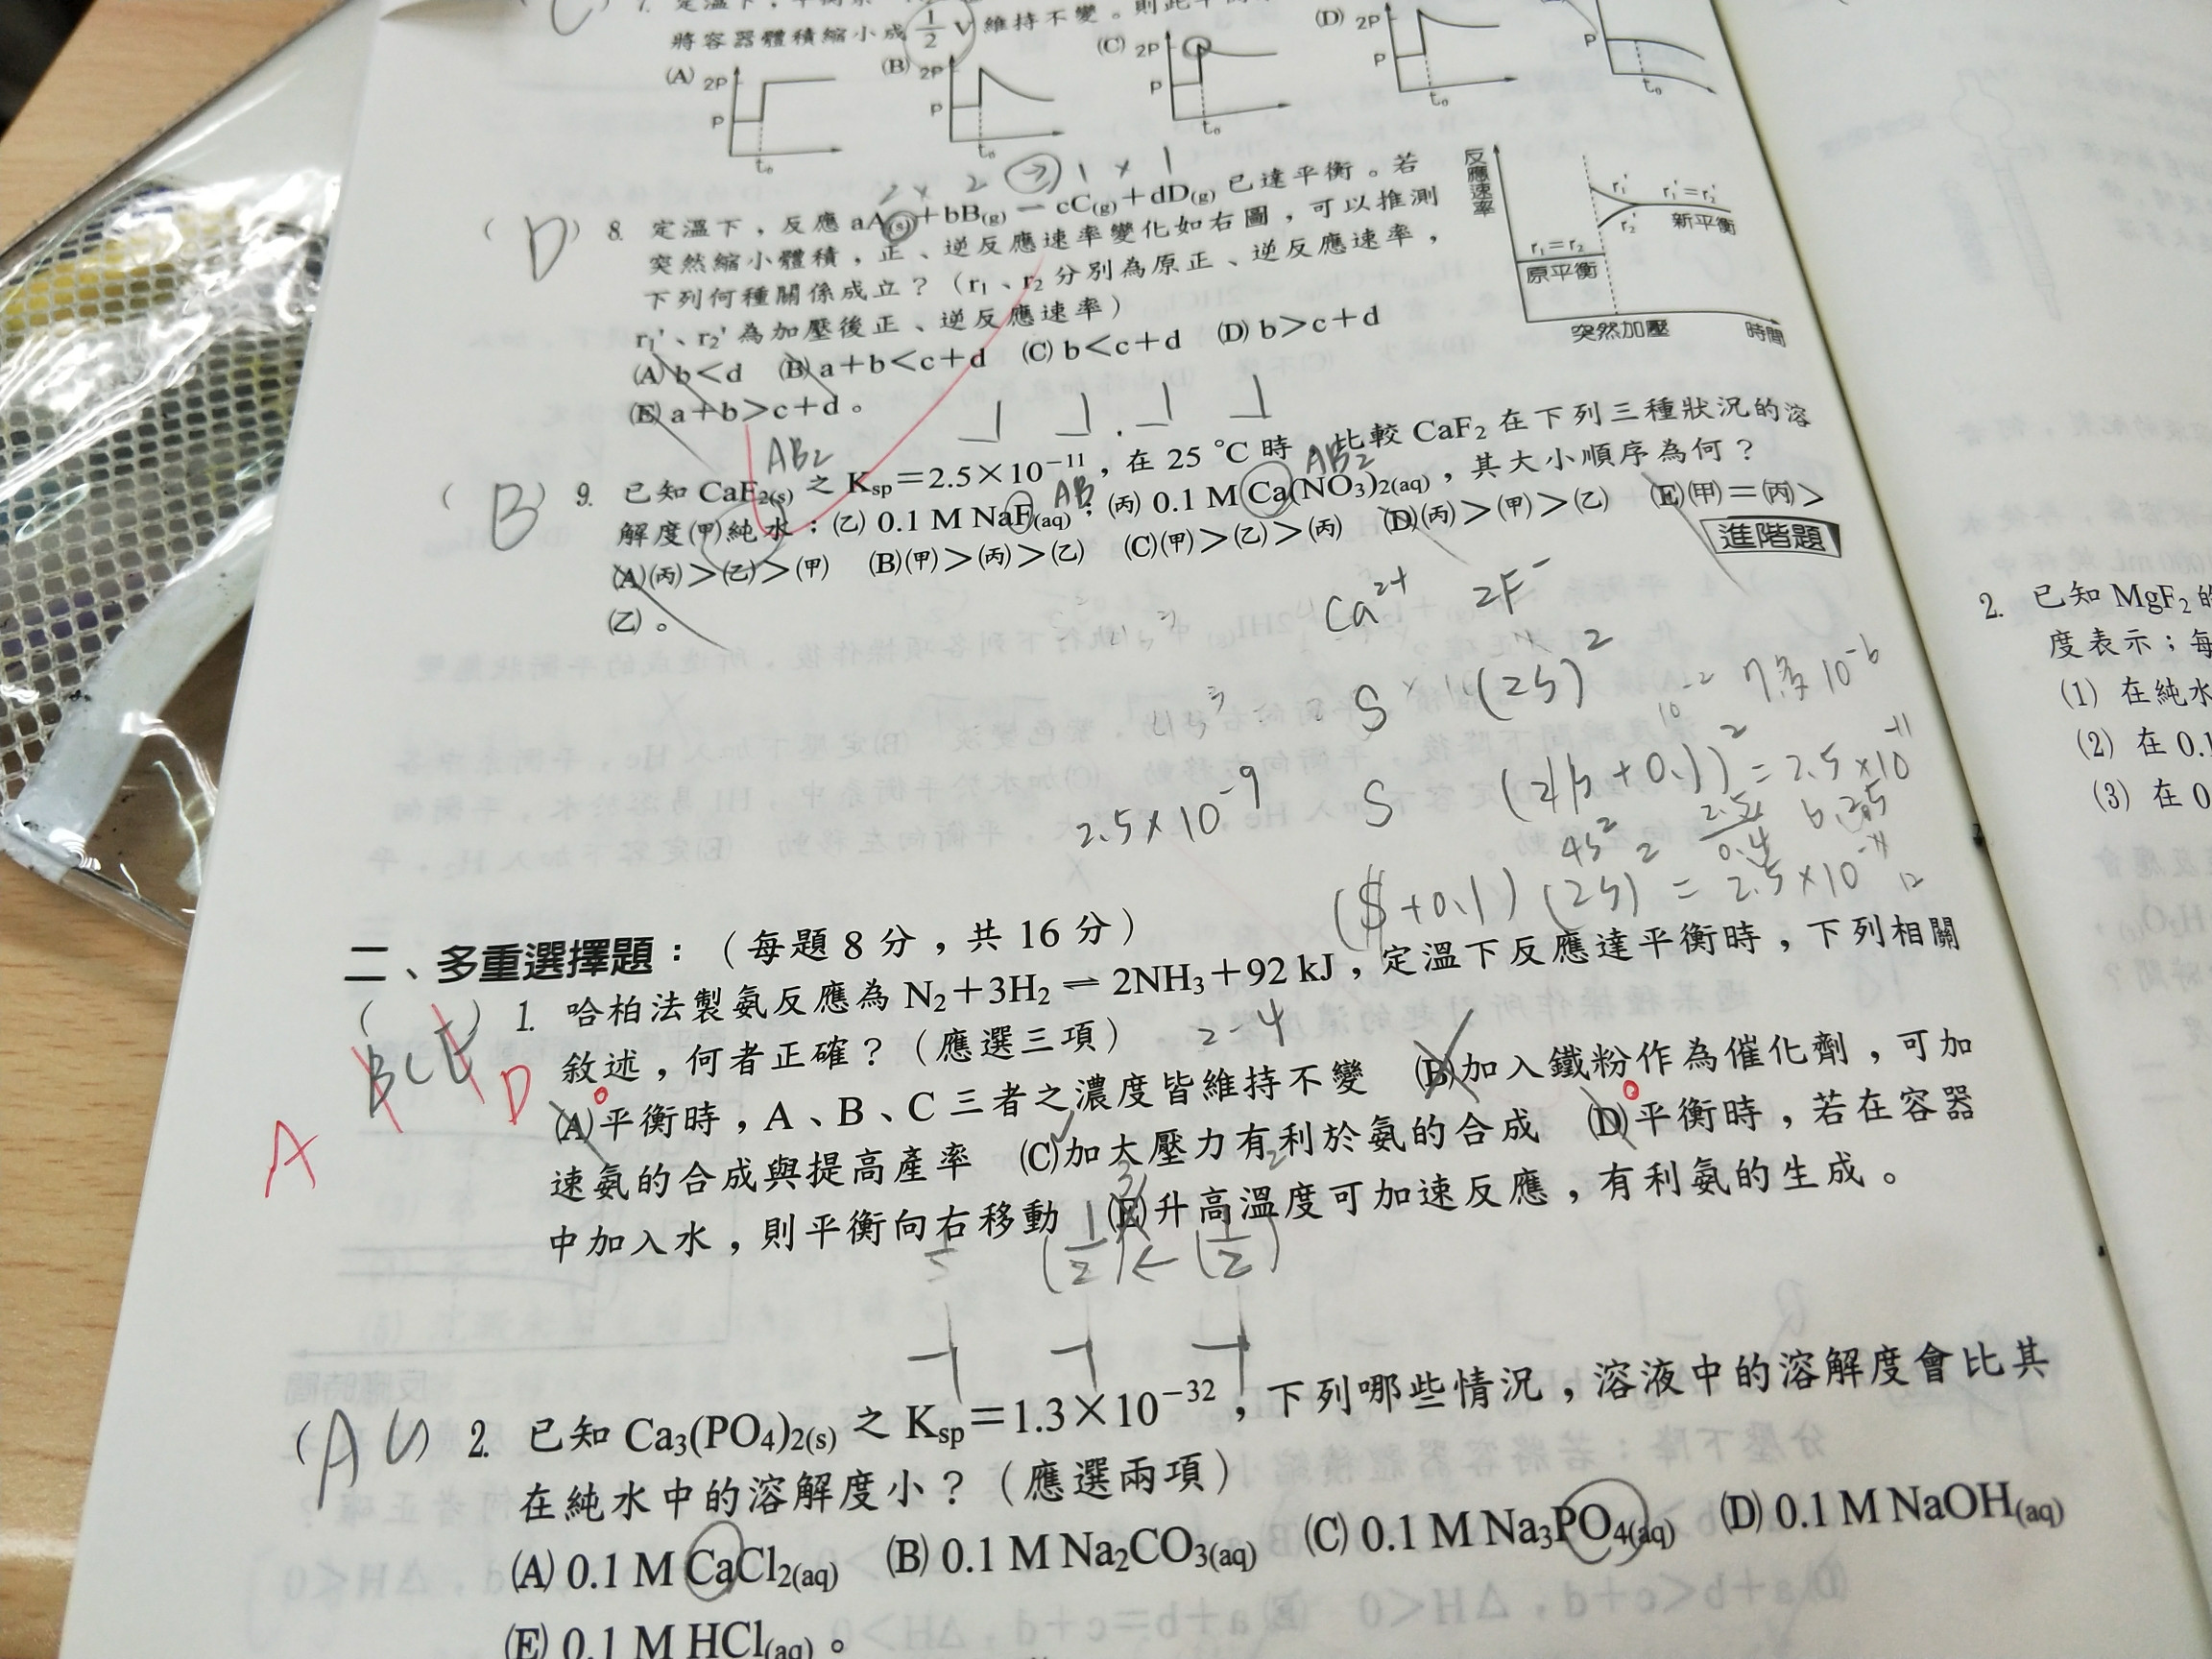 將容器體積縮小成 1/2 V 維持不變。則此平衡
(A) 2P P t₀
(B) 2P P t₀
(C) 2P P t₀
(D) 2P P t₀
P t₀
2 × 2 → 1 × 1
( D ) 8. 定溫下，反應 aA(s)+bB(g) ─ cC(g)+dD(g) 已達平衡。若
突然縮小體積，正、逆反應速率變化如右圖，可以推測
下列何種關係成立？（r₁、r₂ 分別為原正、逆反應速率，
r₁'、r₂' 為加壓後正、逆反應速率）
(A) b＜d (B) a＋b＜c＋d (C) b＜c＋d (D) b＞c＋d
(E) a＋b＞c＋d。
反應速率
r₁' r₁'=r₂'
r₂' 新平衡
r₁=r₂
原平衡
突然加壓 時間
AB₂
( B ) 9. 已知 CaF₂(s) 之 Ksp＝2.5×10⁻¹¹，在 25 °C 時，比較 CaF₂ 在下列三種狀況的溶
AB AB₂
解度(甲)純水；(乙) 0.1 M NaF(aq)；(丙) 0.1 M Ca(NO₃)₂(aq)，其大小順序為何？
(A)(丙)＞(乙)＞(甲) (B)(甲)＞(丙)＞(乙) (C)(甲)＞(乙)＞(丙) (D)(丙)＞(甲)＞(乙) (E)(甲)＝(丙)＞
(乙)。
進階題
Ca²⁺ 2F⁻
S (2S)²
2.5×10⁻⁹ S (2S+0.1)² = 2.5×10⁻¹¹
4S²
(S+0.1) (2S)² = 2.5×10⁻¹¹
二、多重選擇題：（每題 8 分，共 16 分）
( BCE ) 1. 哈柏法製氨反應為 N₂＋3H₂ ⇌ 2NH₃＋92 kJ，定溫下反應達平衡時，下列相關
敘述，何者正確？（應選三項） 2-4
A D
(A)平衡時，A、B、C 三者之濃度皆維持不變 (B)加入鐵粉作為催化劑，可加
速氨的合成與提高產率 (C)加大壓力有利於氨的合成 (D)平衡時，若在容器
中加入水，則平衡向右移動 (E)升高溫度可加速反應，有利氨的生成。
(1/2)³ ← (1/2)²
( AC ) 2. 已知 Ca₃(PO₄)₂(s) 之 Ksp＝1.3×10⁻³²，下列哪些情況，溶液中的溶解度會比其
在純水中的溶解度小？（應選兩項）
(A) 0.1 M CaCl₂(aq) (B) 0.1 M Na₂CO₃(aq) (C) 0.1 M Na₃PO₄(aq) (D) 0.1 M NaOH(aq)
(E) 0.1 M HCl(aq)。
2. 已知 MgF₂ 的
度表示；每
(1) 在純水
(2) 在 0.1
(3) 在 0